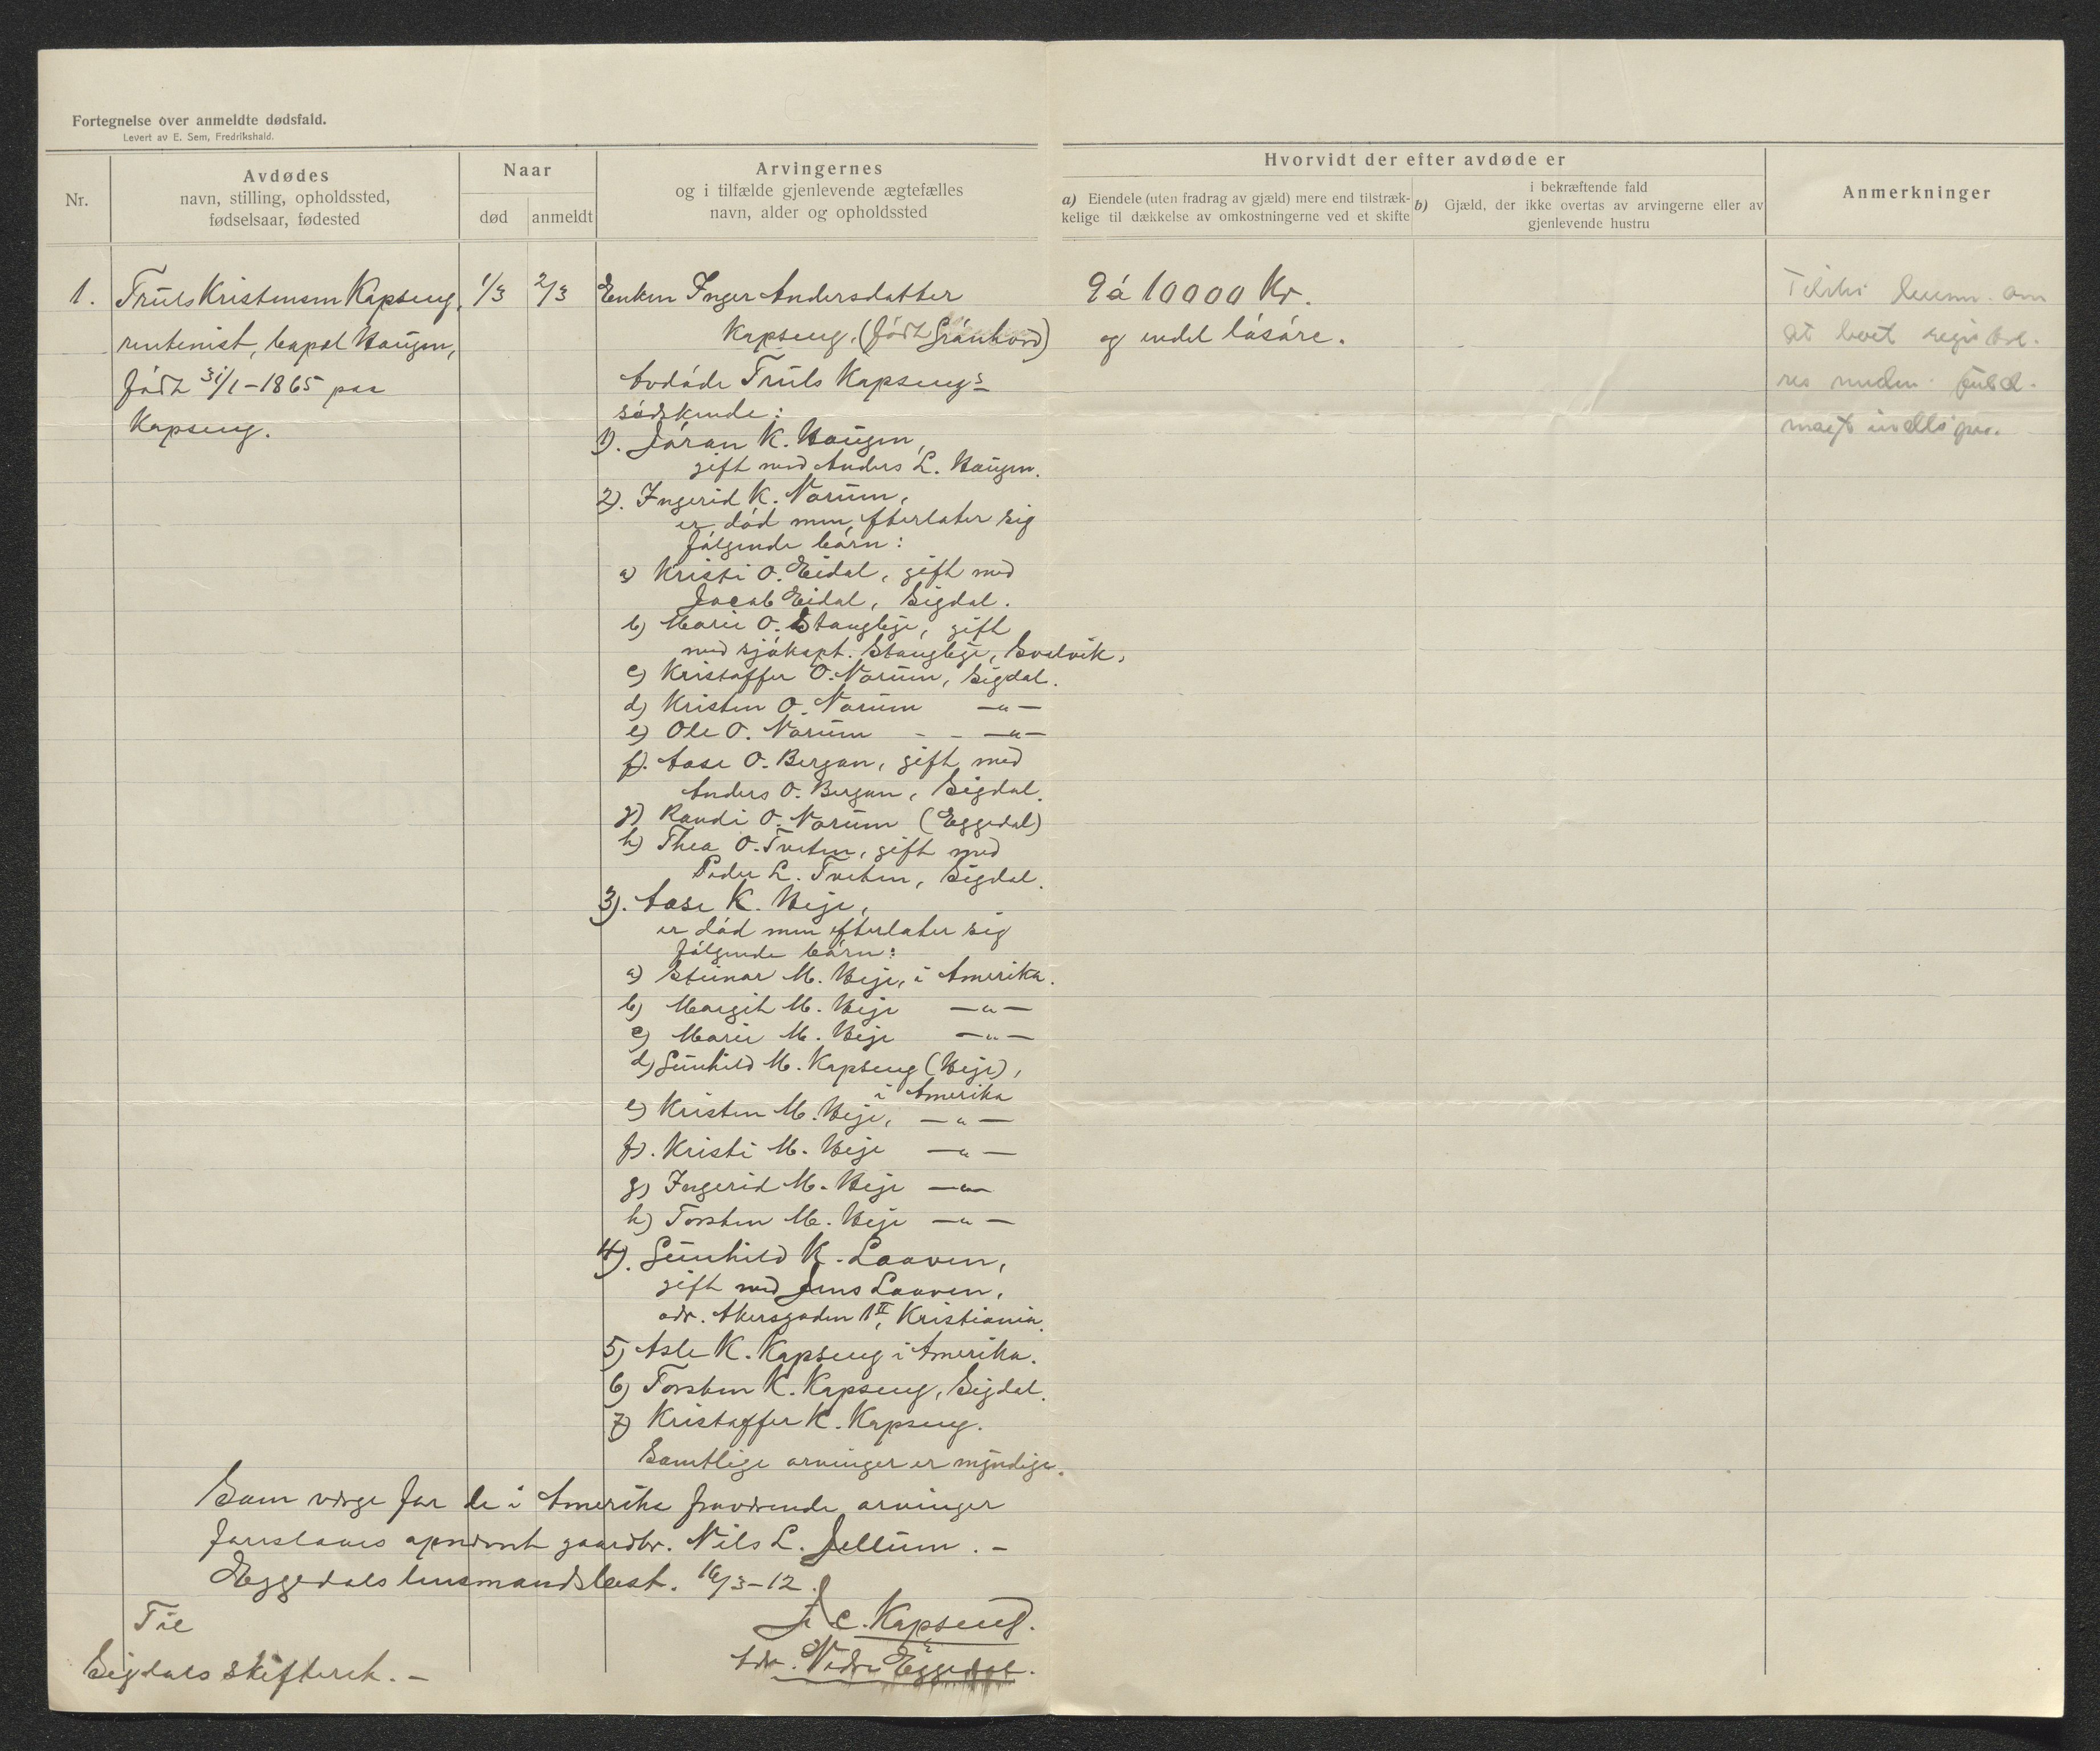 Fortegnelse over anmeldte dødsfald.
Levert av E. Sem, Fredrikshald.
Nr.
Avdødes
navn, stilling, opholdssted,
fødselsaar, fødested
Naar
død
anmeldt
Arvingernes
og i tilfælde gjenlevende ægtefælles
navn, alder og opholdssted
Hvorvidt der efter avdøde er
a) Eiendele (uten fradrag av gjæld) mere end tilstræk-
kelige til dækkelse av omkostningerne ved et skifte
i bekræftende fald
b) Gjæld, der ikke overtas av arvingerne eller av
gjenlevende hustru
Anmerkninger
1.
Truls Kristensen Kapseng,
rentenist, Haugen,
født 31/1-1865 paa
Kapseng.
1/3
2/3
Enken Inger Andersdatter
Kapseng, (født Grønhovd)
Avdøde Truls Kapsengs
sødskende:
1). Jøran K. Haugen,
gift med Anders L. Haugen.
2). Ingerid K. Narum,
er død men efterlater sig
følgende børn:
a) Kristi O. Eidal, gift med
Jacob Eidal, Sigdal.
b) Marie O. Stangleje, gift
med sjøkapt. Stangleje, Svelvik,
c) Kristoffer O. Narum, Sigdal.
d) Kristen O. Narum —„—
e) Ole O. Narum - - —„—
f). Aase O. Bergan, gift med
Anders O. Bergan, Sigdal.
g) Randi O. Narum (Eggedal)
h) Thea O. Tveten, gift med
Peder L. Tveten, Sigdal.
3). Aase K. Heje,
er død men efterlater sig
følgende børn:
a) Steinar M. Heje, i Amerika.
b) Margit M. Heje —„—
c) Marie M. Heje —„—
d) Gunhild M. Kapseng (Heje),
i Amerika
e) Kristen M. Heje, —„—
f). Kristi M. Heje —„—
g) Ingerid M. Heje —„—
h) Torsten M. Heje —„—
4). Gunhild K. Laaven,
gift med Jens Laaven,
adr. Akersgaden 1 II, Kristiania.
5) Asle K. Kapseng i Amerika.
6) Torsten K. Kapseng, Sigdal.
7) Kristoffer K. Kapseng.
Samtlige arvinger er myndige.
9 á 10000 Kr.
og endel løsøre.
Tilskr. lensm. om
at boet registre-
res meden fuld-
magt
Som værge for de i Amerika fraværende arvinger
foreslaaes opnævnt gaardbr. Nils L. Jellum. -
Eggedals lensmandsbest. 16/3-12.
J C. Kapseng.
Adr. Nedre Eggedal.
Til
Sigdals skifteret. -